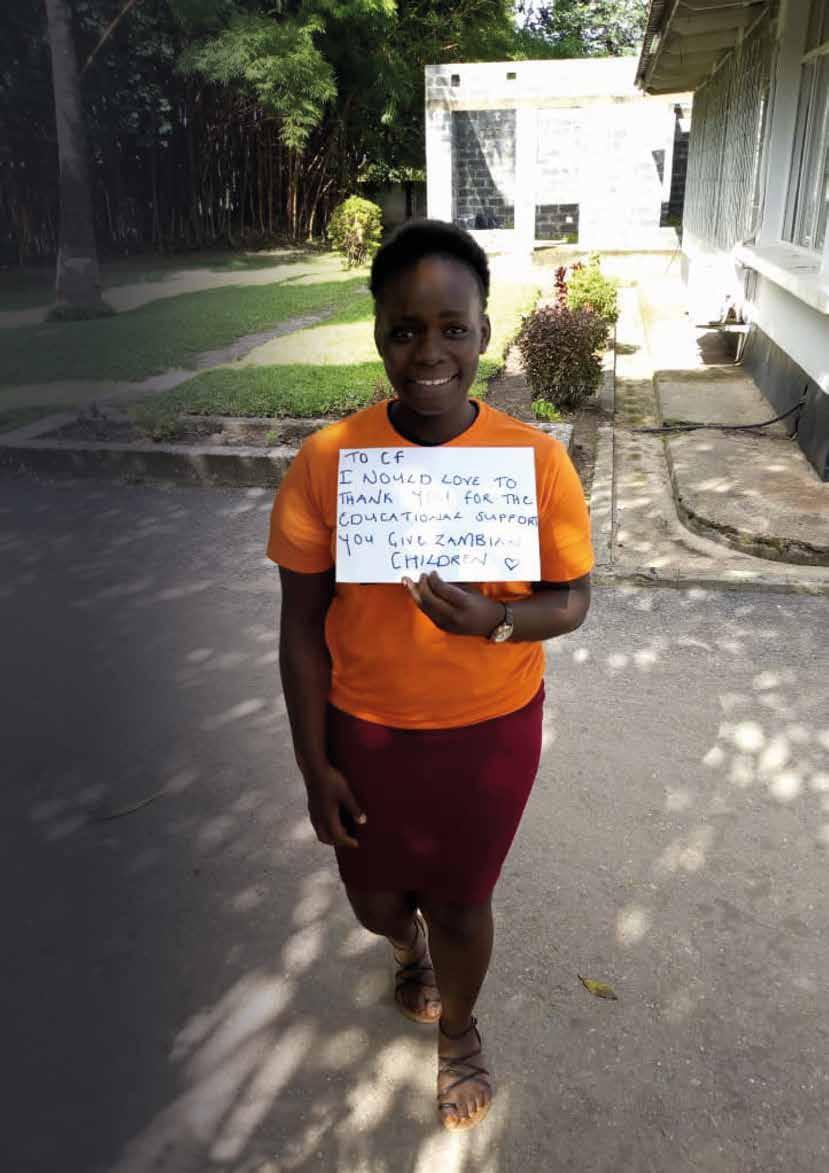 TO CF
I WOULD LOVE TO
THANK YOU FOR THE
EDUCATIONAL SUPPORT
YOU GIVE ZAMBIAN
CHILDREN ♡